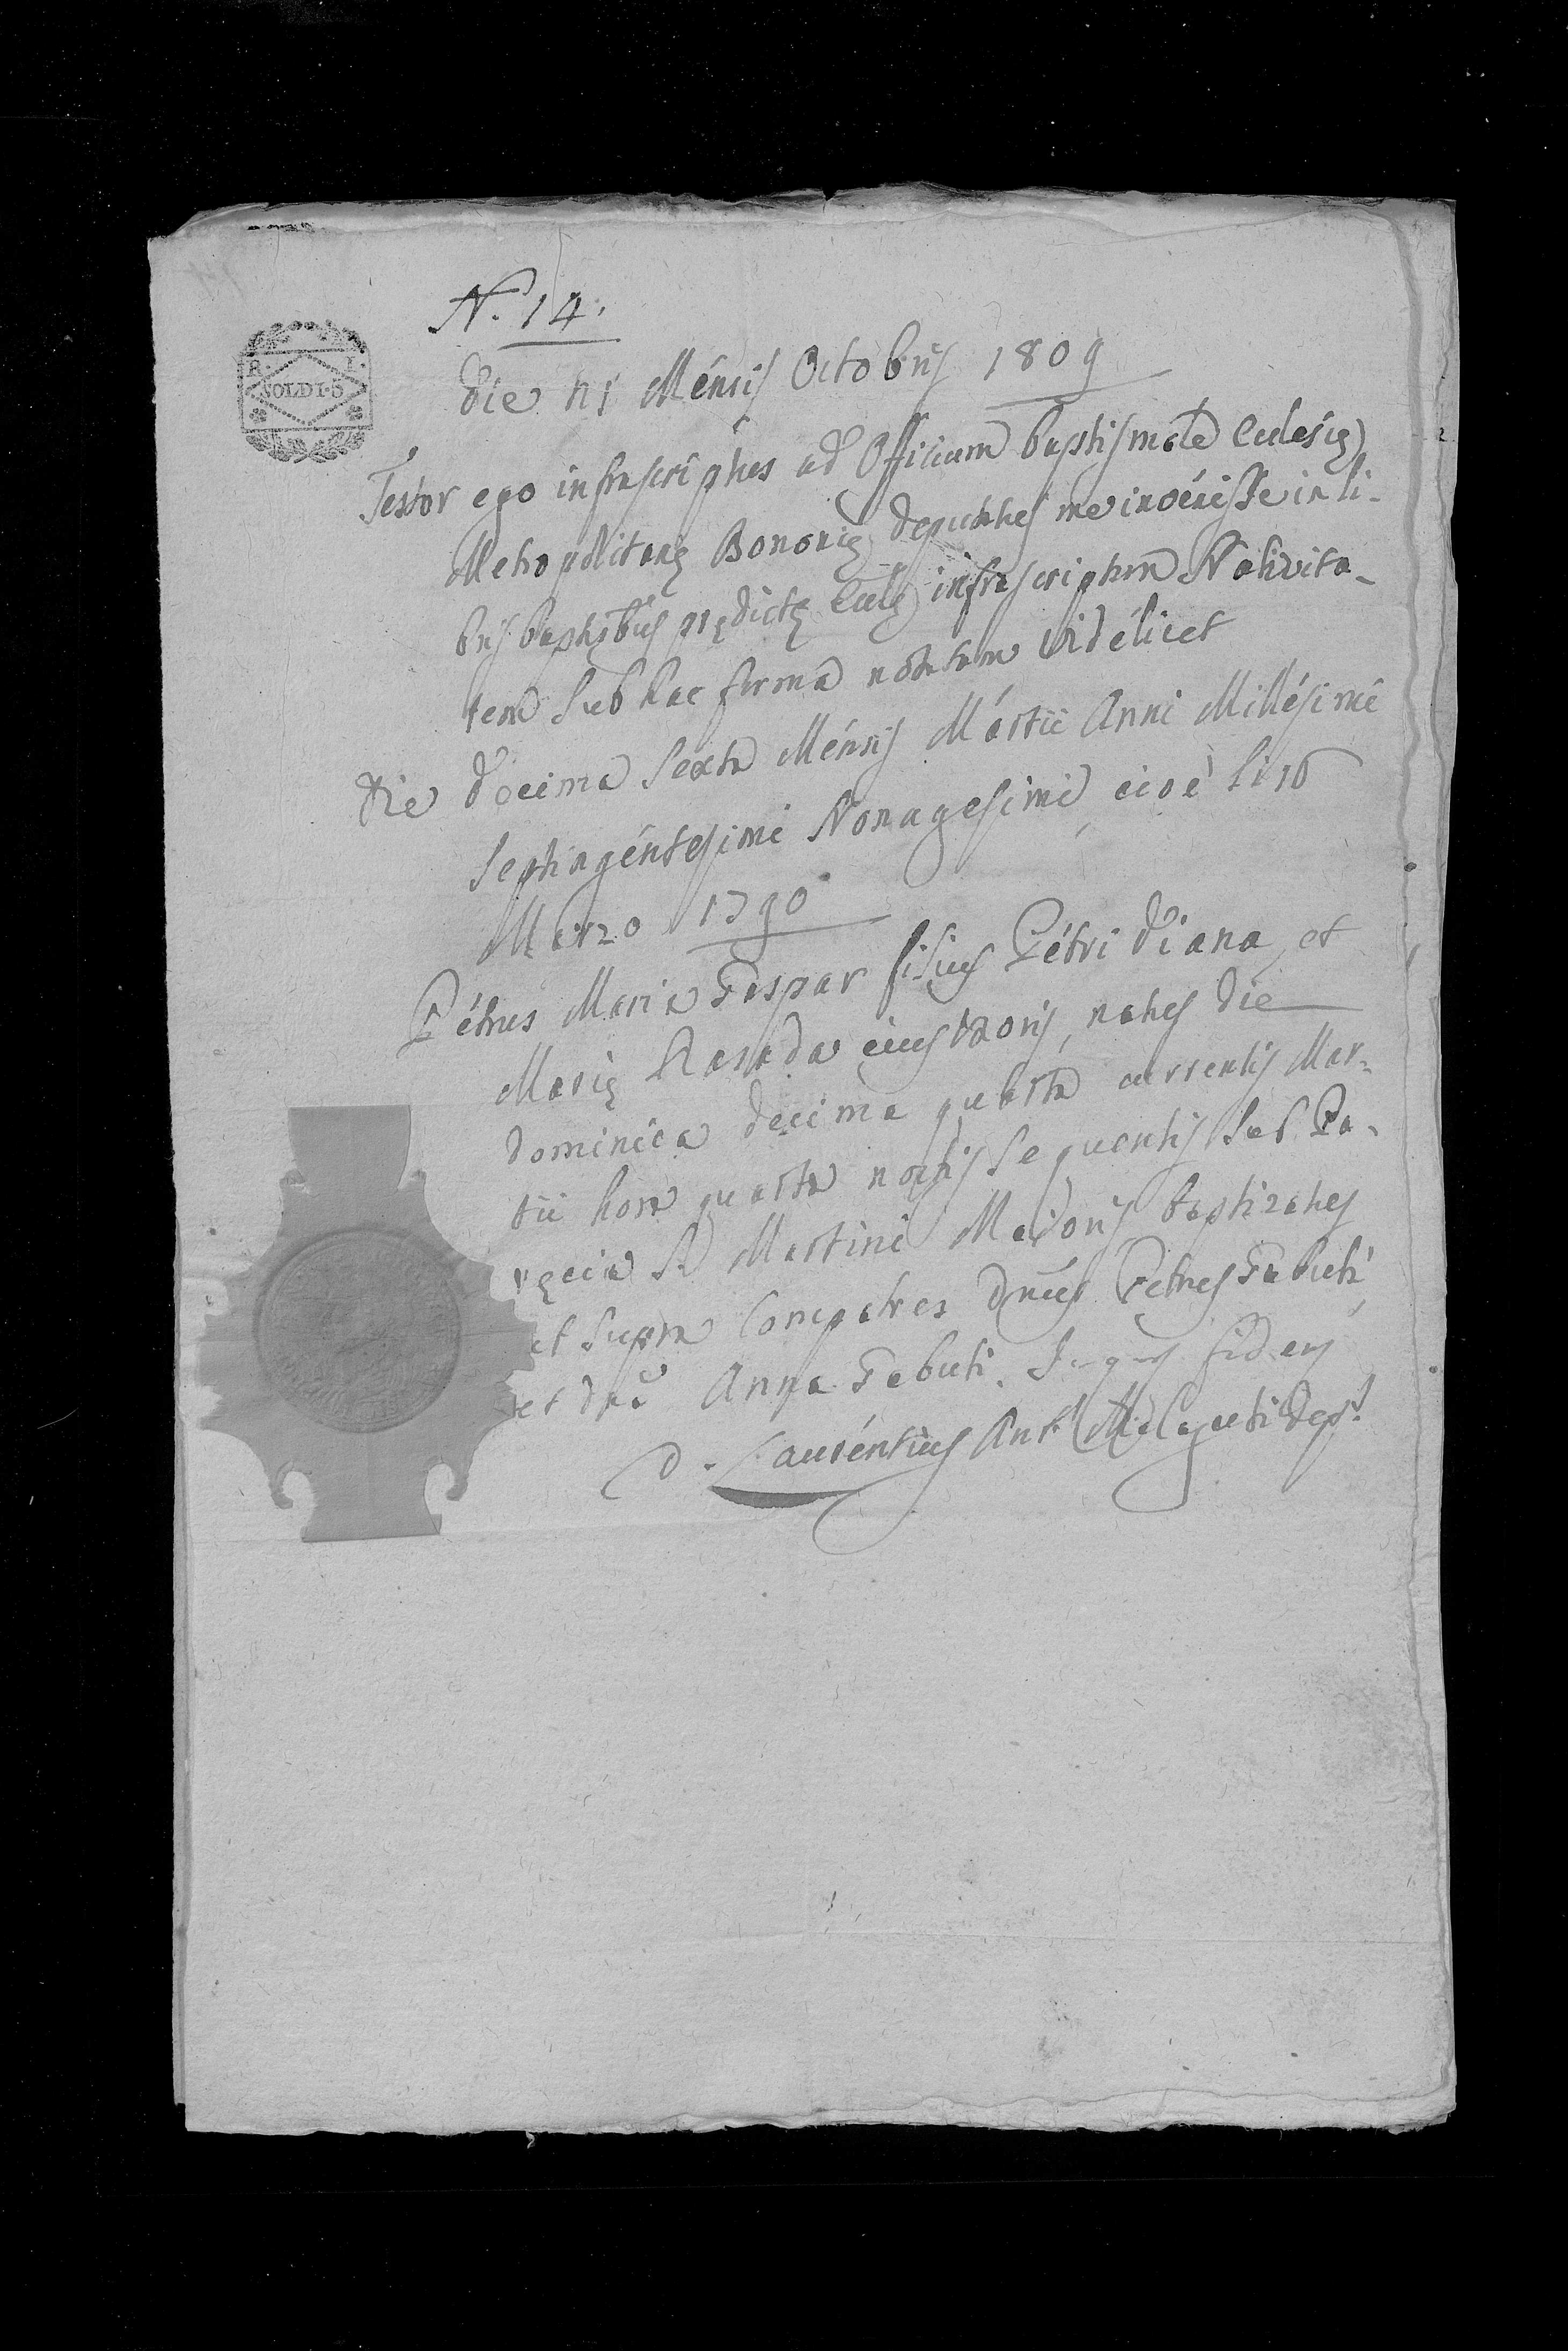 N. 14.
R. I.
SOLDI·5
Die Mensis Octobris 1809
Testor ego infrascriptus ad Officium baptismale Eeclesię
Metropolitanę Bononię deputatus me invenisse in li-
bris baptizatorum prędictę Eccle infrascriptam Nativita-
tem sub hac forma notatam videlicet
Die decima sexta Mensis Martii Anni Millesimi
Septingentesimi Nonagesimi cioè li 16
Marzo 1790
Petrus Maria Gaspar filius Petri Diana, et
Marię eius uxoris, natus die
dominica decima quarta currentis Mar-
tii hora quarta noctis sequentis sub Pa-
ręcia S. Martini Maioris baptizatus
ut supra Compatres Dnus Petrus Gabuti
et Dna Anna Gabuti. In quor. fidem
D. Laurentius Ant. Malaguti Dep.